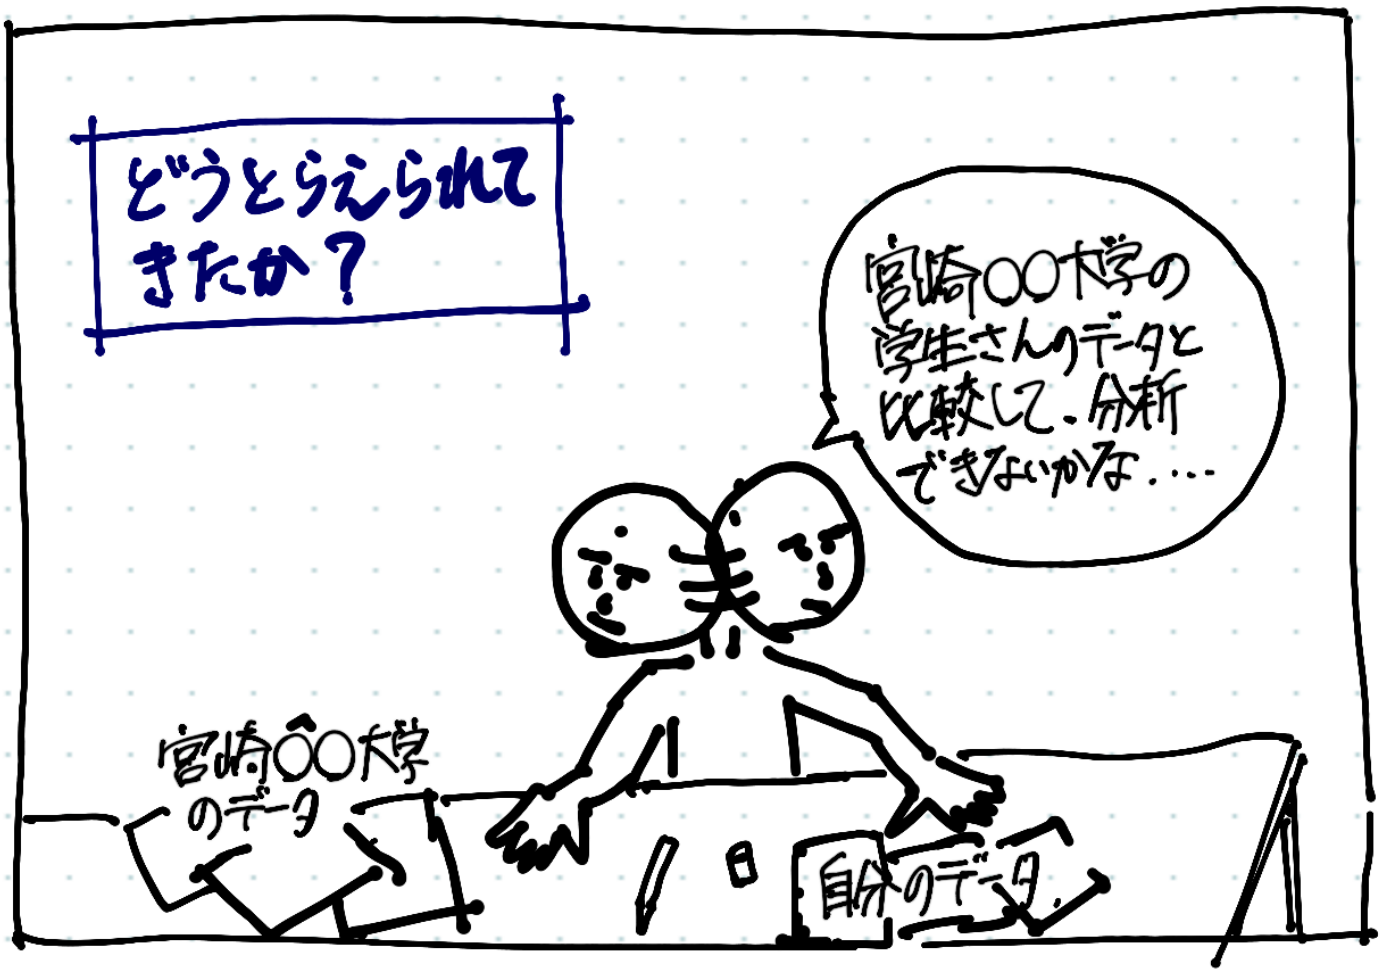 どうとらえられて
きたか？
宮崎〇〇大学の
学生さんのデータと
比較して、分析
できないかな.....
宮崎〇〇大学
のデータ
自分のデータ.